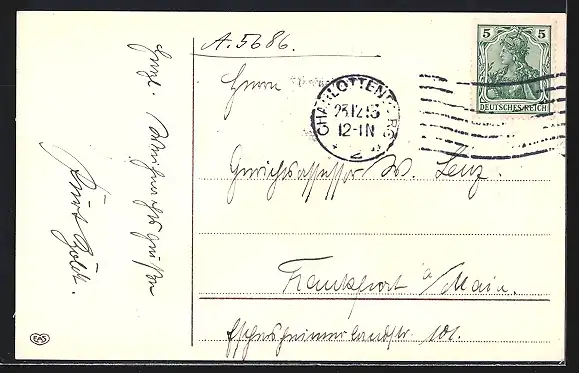 A. 5686.
5 5
DEUTSCHES REICH
Herrn
CHARLOTTENBURG
23.12.13
12-1N
* 2
Gerichtsassessor W. Lenz.
Frankfurt a/Main.
Eschersheimerlandstr. 101.
Herzl. Weihnachtsgrüße
EAS